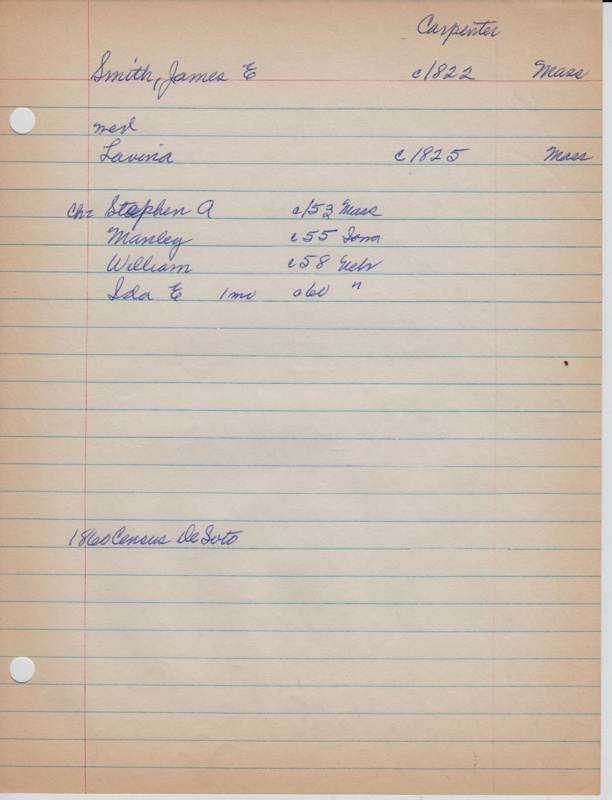 Carpenter
Smith, James E c/1822 Mass
med
Lavina c1825 Mass
Ch: Stephen A c/53 Mass
Manley c55 Iowa
William c58 Nebr
Ida E 1mo c60 "
1860 Census DeSoto